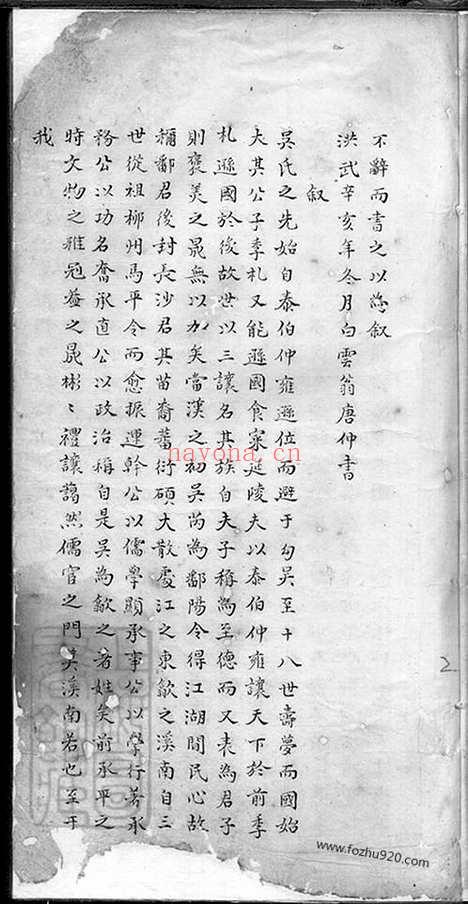 不辭而書之以為叙
洪武辛亥年冬月白雲翁唐仲書
叙
吳氏之先始自泰伯仲雍遜位而避于勾吳至十八世壽夢而國始
大其公子季札又能遜國食寀延陵夫以泰伯仲雍讓天下於前季
札遜國於後故世以三讓名其族自夫子稱為至德而又表為君子
則褒美之晁無以加矣當漢之初吳芮為鄱陽令得江湖間民心故
稱鄱君後封長沙君其苗裔蕃衍碩大散處江之東歙之溪南自三
世從祖柳州馬平令而愈振運幹公以儒學顯承事公以學行著承
務公以功名奮承直公以政治稱自是吳為歙之著姓矣前承平之
時文物之雅冠蓋之晁彬〻禮讓藹然儒宦之門吳溪南若也至于
我
2
hayona.cn
www.fozhu920.com